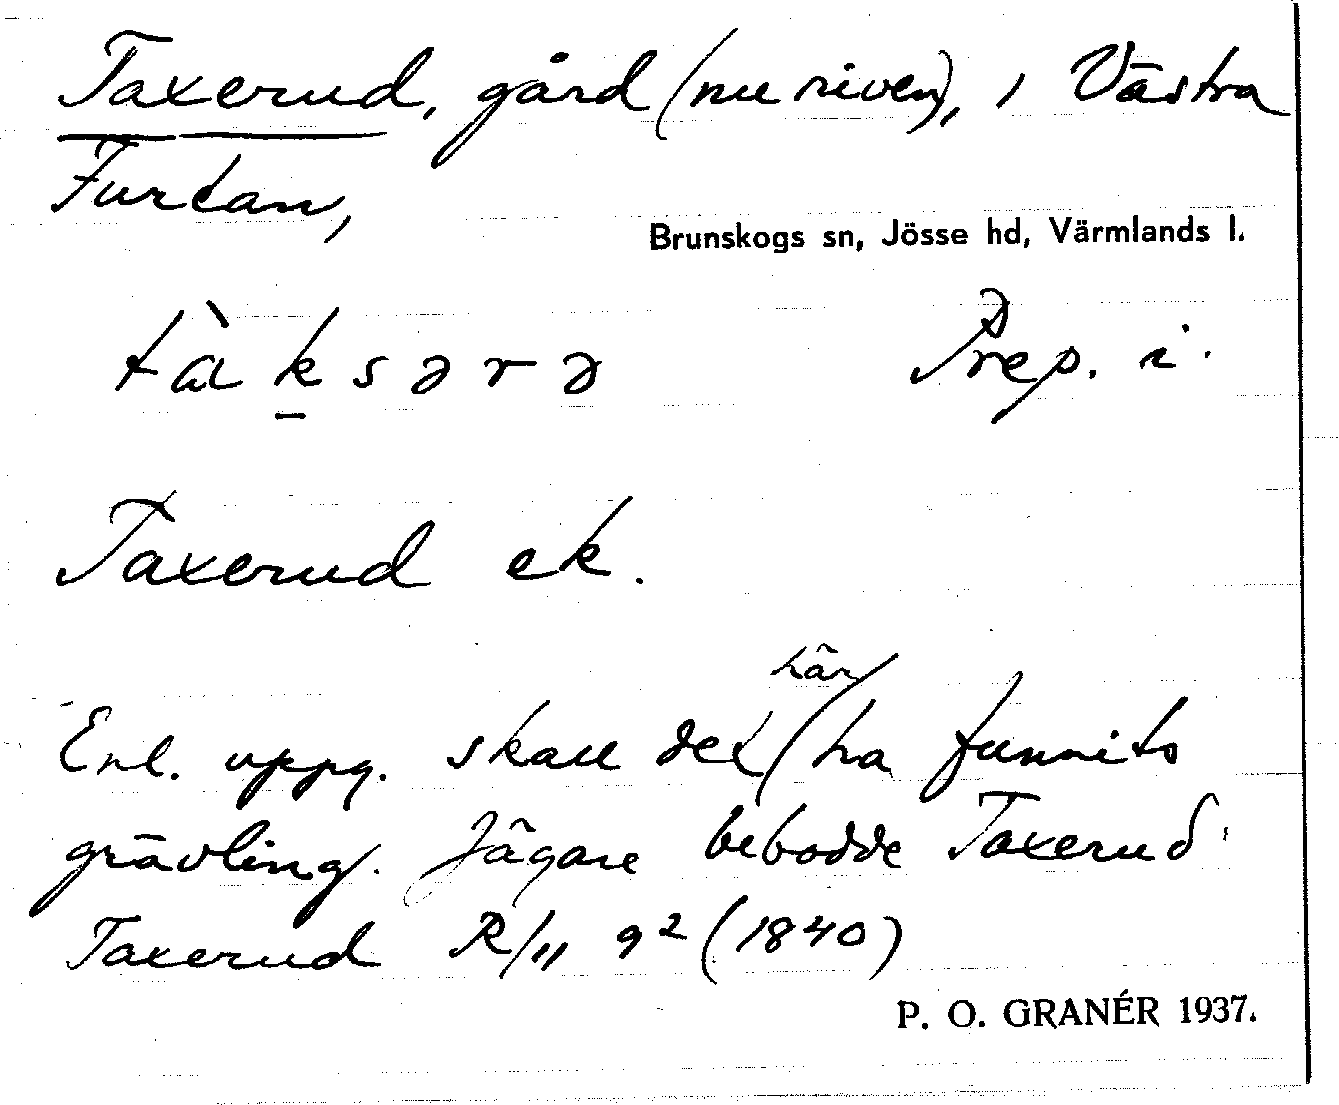 Taxerud, gård (nu riven), i Västra
Furtan,
Brunskogs sn, Jösse hd, Värmlands l.
tàksərə Prep. i.
Taxerud ek.
Enl. uppg. skall det här ha funnits
grävling. Jägare bebodde Taxerud.
Taxerud R/11 9² (1840)
P. O. GRANÉR 1937.